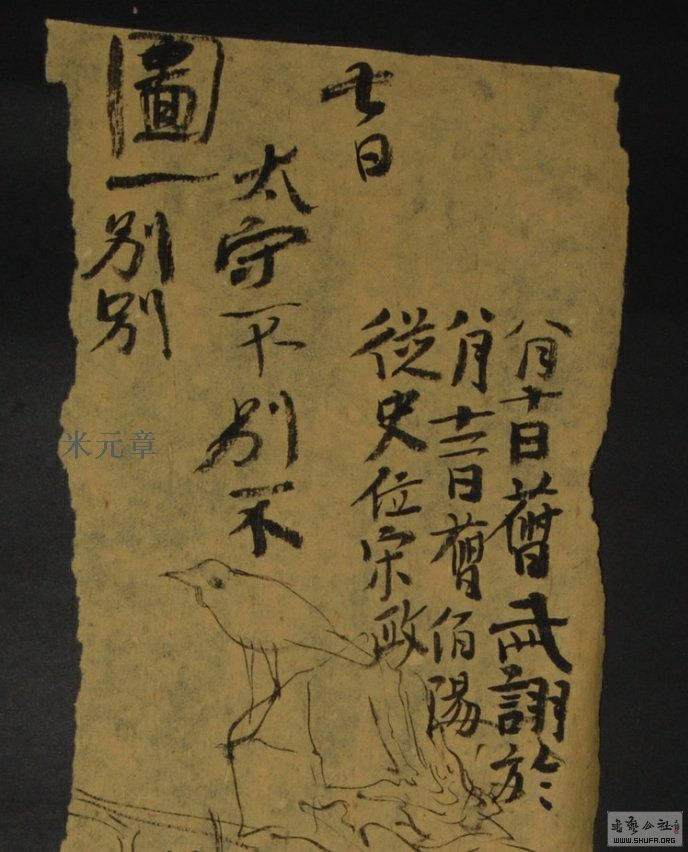 七日
八月十日舊武詡於
八月十三日舊伯陽
從史位宗政
太守一不別不
圖一別別
米元章
書藝公社
WWW.SHUFA.ORG